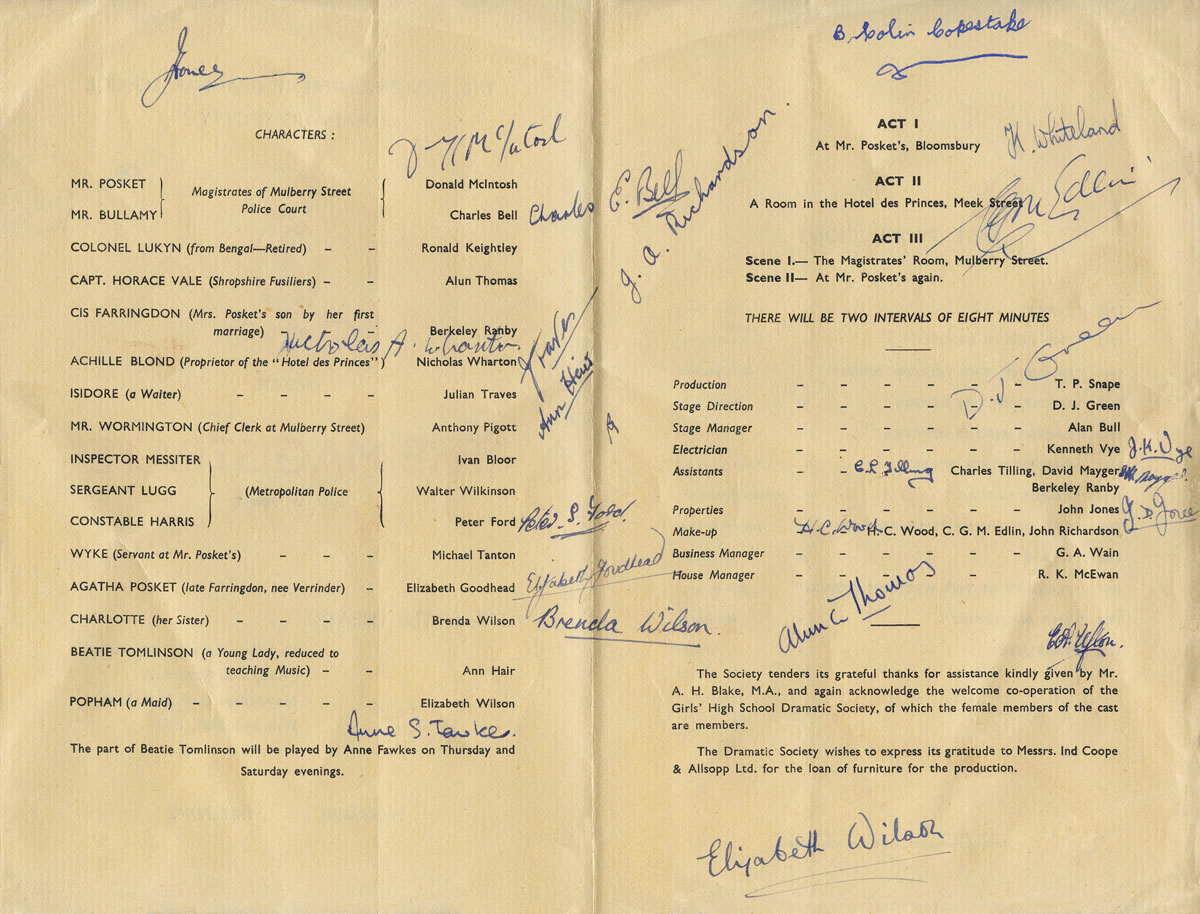 CHARACTERS :
D H McIntosh
MR. POSKET
Magistrates of Mulberry Street
Police Court
Donald McIntosh
MR. BULLAMY
Charles Bell
Charles E. Bell
COLONEL LUKYN (from Bengal—Retired) – – Ronald Keightley
CAPT. HORACE VALE (Shropshire Fusiliers) – – Alun Thomas
CIS FARRINGDON (Mrs. Posket's son by her first
marriage) – – – Berkeley Ranby
Nicholas A. Wharton.
ACHILLE BLOND (Proprietor of the "Hotel des Princes") Nicholas Wharton
ISIDORE (a Waiter) – – – – Julian Traves
Traves
Ann Hair
MR. WORMINGTON (Chief Clerk at Mulberry Street) Anthony Pigott
INSPECTOR MESSITER Ivan Bloor
SERGEANT LUGG (Metropolitan Police Walter Wilkinson
CONSTABLE HARRIS Peter Ford Peter S. Ford.
WYKE (Servant at Mr. Posket's) – – – Michael Tanton
AGATHA POSKET (late Farringdon, nee Verrinder) – Elizabeth Goodhead Elizabeth Goodhead
CHARLOTTE (her Sister) – – – – Brenda Wilson Brenda Wilson.
BEATIE TOMLINSON (a Young Lady, reduced to
teaching Music) – – Ann Hair
POPHAM (a Maid) – – – – – Elizabeth Wilson
Anne S. Fawkes.
The part of Beatie Tomlinson will be played by Anne Fawkes on Thursday and
Saturday evenings.
J. A. Richardson.
B. Colin Copestake
ACT I
At Mr. Posket's, Bloomsbury
K. Whiteland
ACT II
A Room in the Hotel des Princes, Meek Street
Edlin
ACT III
Scene I.— The Magistrates' Room, Mulberry Street.
Scene II— At Mr. Posket's again.
THERE WILL BE TWO INTERVALS OF EIGHT MINUTES
D. J Green
Production – – – – – – T. P. Snape
Stage Direction – – – – – – D. J. Green
Stage Manager – – – – – – Alan Bull
Electrician – – – – – – Kenneth Vye J.K.Vye
Assistants – – C L Tilling Charles Tilling, David Mayger
Berkeley Ranby
Properties – – – – – – John Jones
Make-up – H.C.Wood H. C. Wood, C. G. M. Edlin, John Richardson
Business Manager – – – – – G. A. Wain
House Manager – – – – – R. K. McEwan
Alun C Thomas
The Society tenders its grateful thanks for assistance kindly given by Mr.
A. H. Blake, M.A., and again acknowledge the welcome co-operation of the
Girls' High School Dramatic Society, of which the female members of the cast
are members.
The Dramatic Society wishes to express its gratitude to Messrs. Ind Coope
& Allsopp Ltd. for the loan of furniture for the production.
Elizabeth Wilson